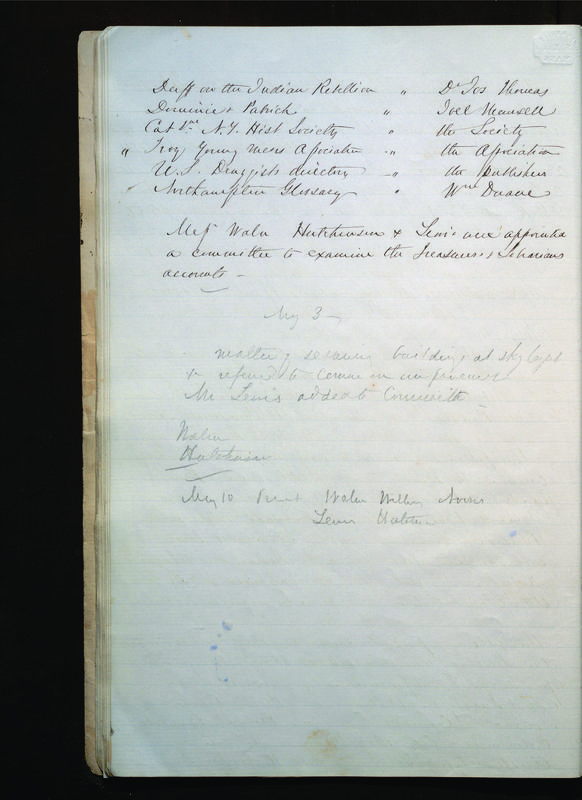 Duff on the Indian Rebellion " Dr Jos Thomas
Dominie & Patrick " Joel Munsell
Cat N.Y. Hist Society " the Society
" Troy Young mens Association " the Association
U.S. Druggists directory " the publisher
Northampton Glossary " Wm Duane
Messrs Waln Hutchinson & Lewis were appointed
a committee to examine the Treasurers & Librarians
accounts —
May 3 —
matter of securing building at sky light
& refered to Comm on improvement
Mr Lewis added to Committee —
Waln
Hutchinson
May 10 Present Waln Norris
Lewis Hutchin